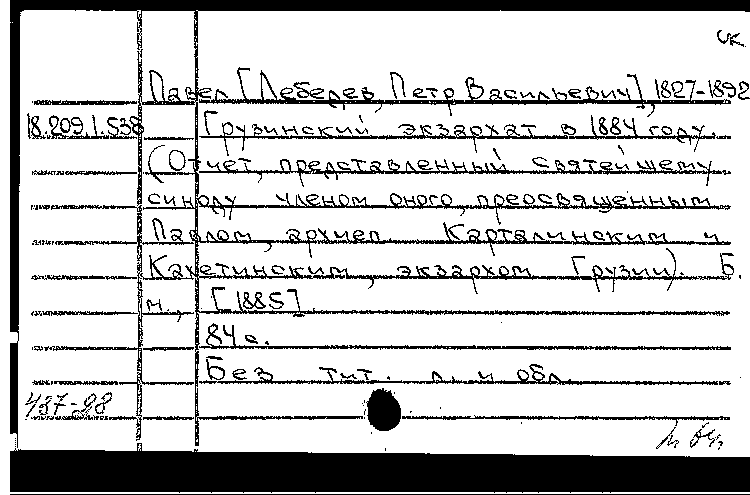 ск
Павел [Лебедев, Петр Васильевич], 1827-1892
18.209.1.538 Грузинский экзархат в 1884 году.
(Отчет, представленный святейшему
синоду членом оного, преосвященным
Павлом, архиеп. Карталинским и
Кахетинским, экзархом Грузии). Б.
м., [1885]
84 с.
Без тит. л. и обл.
437-28